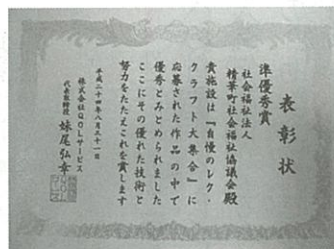 表彰状
準優秀賞
社会福祉法人
精華町社会福祉協議会殿
貴施設は『自慢のレク・
クラフト大集合』に
応募された作品の中で
優秀とみとめられました
ここにその優れた技術と
努力をたたえこれを賞します
平成二十四年八月三十一日
株式会社QOLサービス
代表取締役 妹尾弘幸